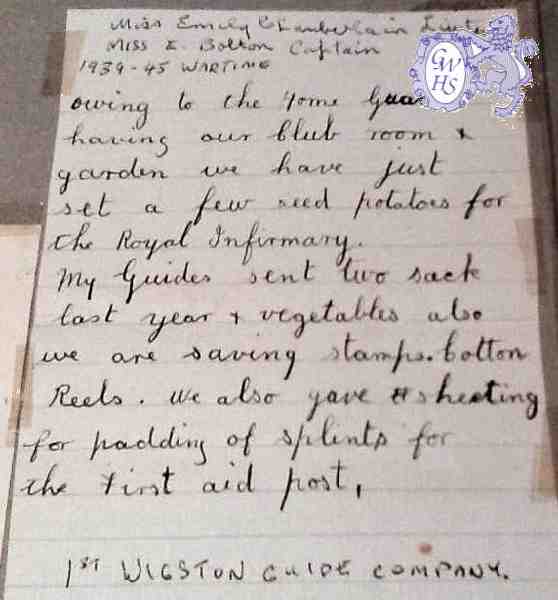 Miss Emily Chamberlain Lieut
Miss E. Bolton Captain
1939-45 WARTIME
GWHS
owing to the Home Guard
having our Club room &
garden we have just
set a few seed potatoes for
the Royal Infirmary.
My Guides sent two sack
last year & vegetables also
we are saving stamps. Cotton
Reels. We also gave sheeting
for padding of splints for
the first aid post,
1ST WIGSTON GUIDE COMPANY.